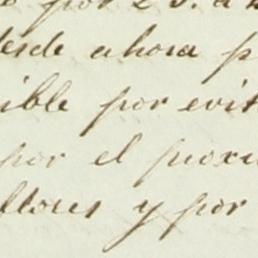 por 20. a
desde ahora p
ible por evit
por el proxi
lores y por